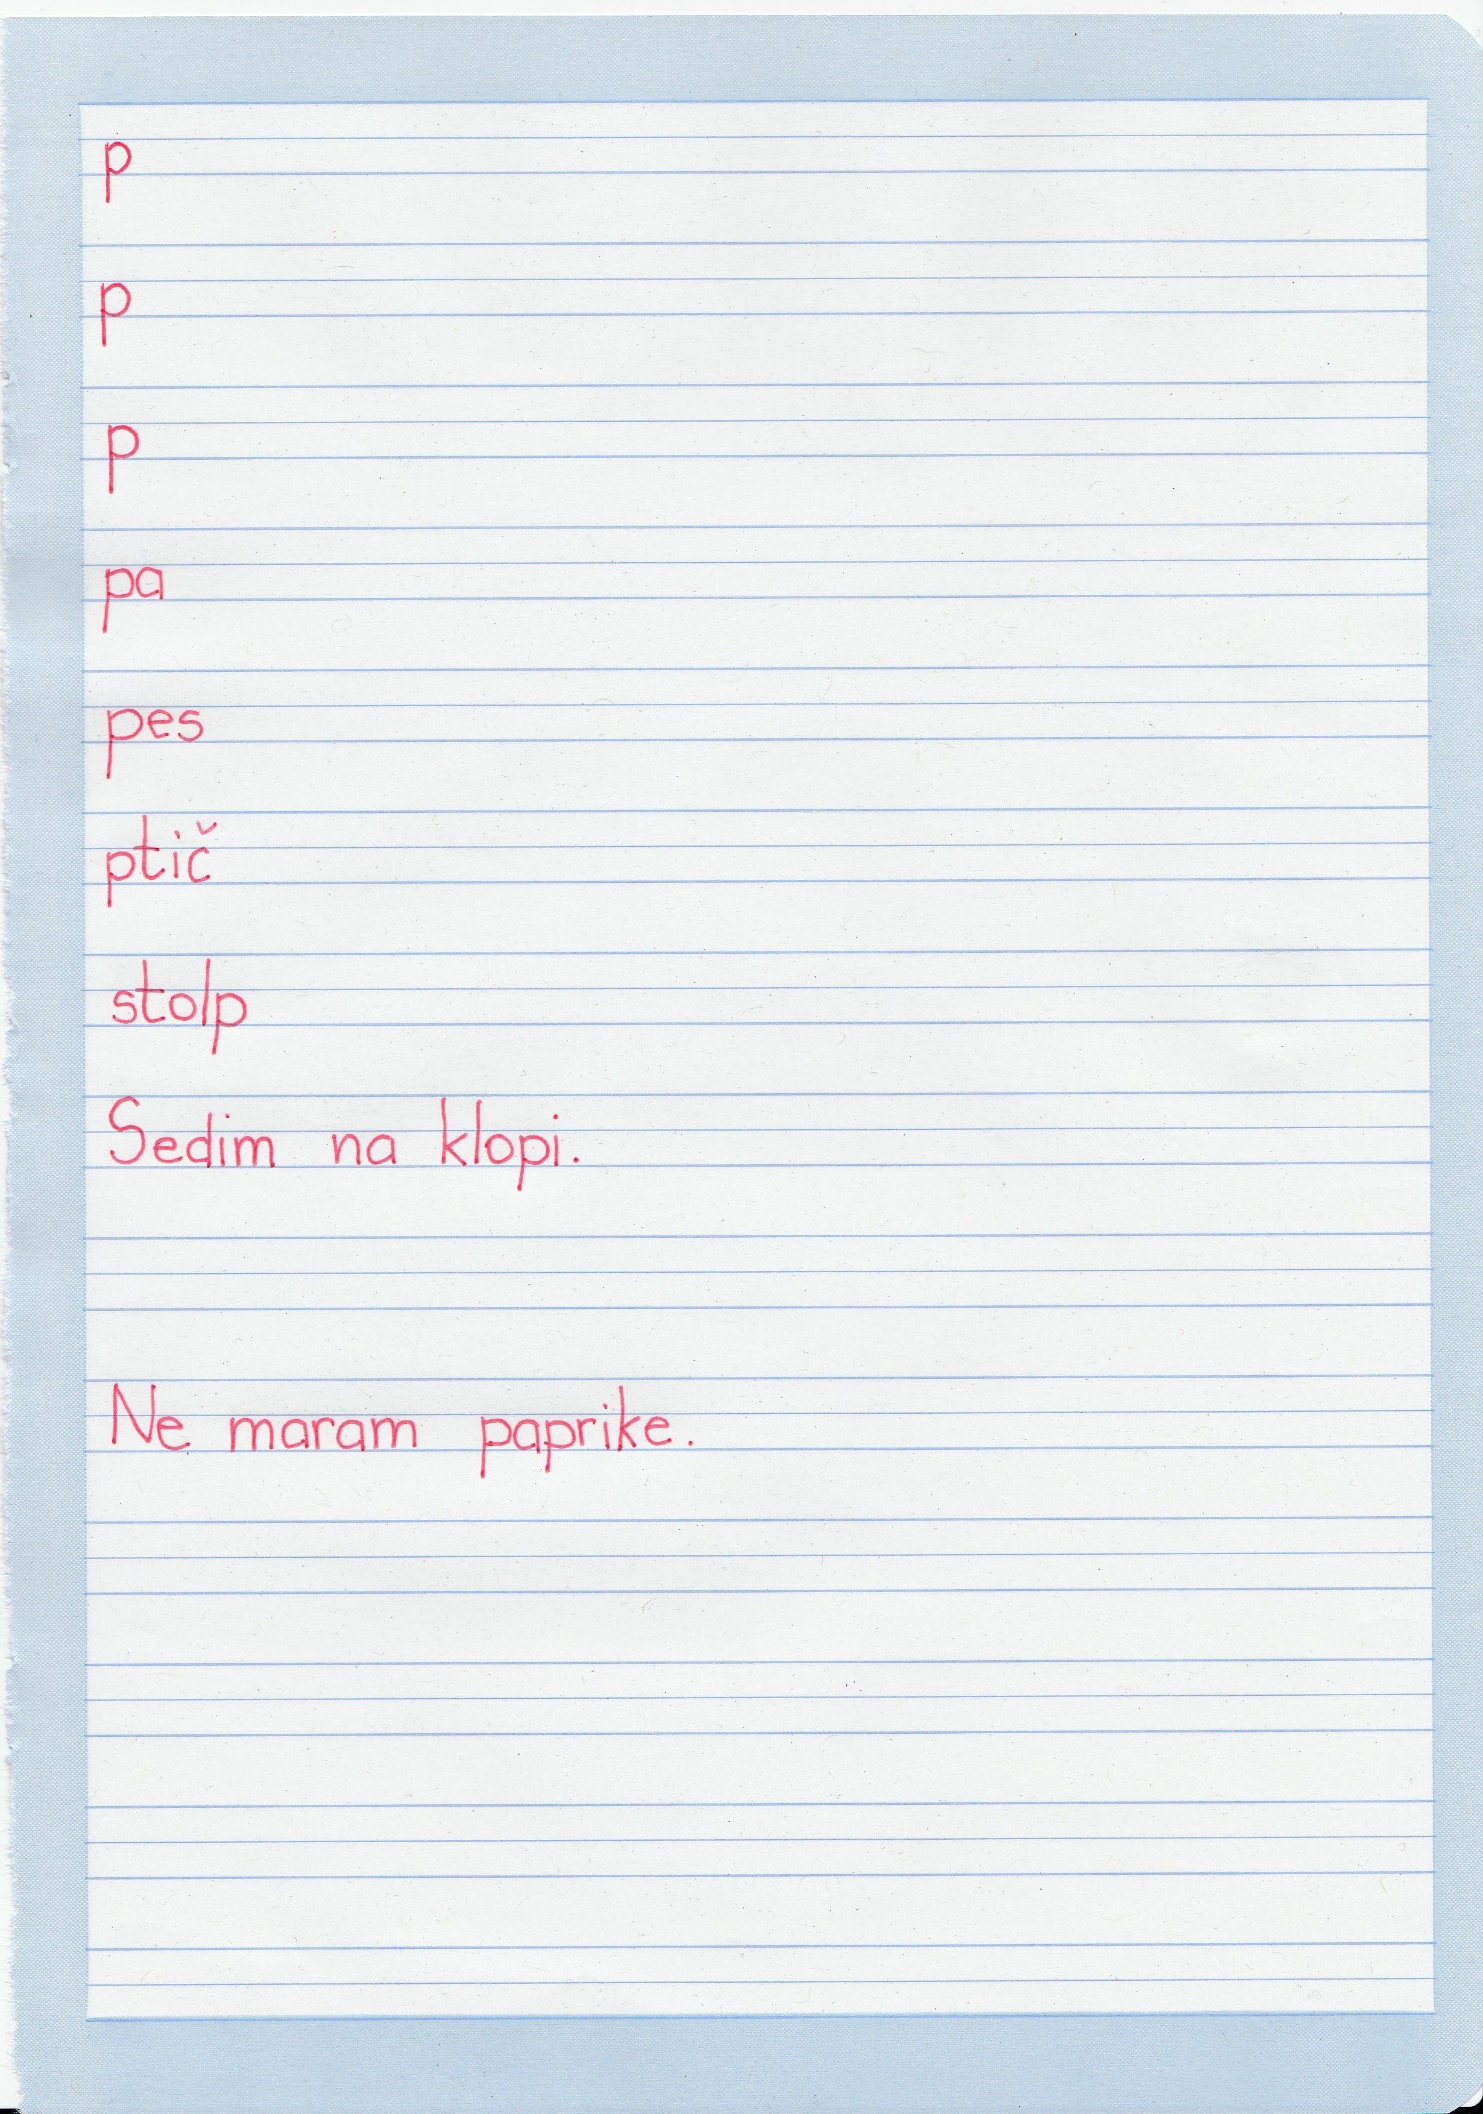 p
p
p
pa
pes
ptič
stolp
Sedim na klopi.
Ne maram paprike.